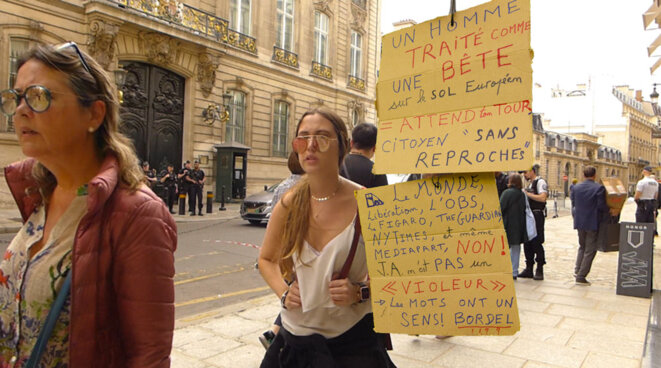 UN HOMME
TRAITÉ COMME
UNE BÊTE
sur le SOL Européen
= ATTEND ton TOUR
CITOYEN "SANS
REPROCHES"
LE MONDE,
Libération, L'OBS,
LE FIGARO, THE GUARDIAN
NY TIMES, et même
MEDIAPART, NON!
J.A. n'est PAS un
« VIOLEUR »
→ Les MOTS ONT UN
SENS! BORDEL
HONOR